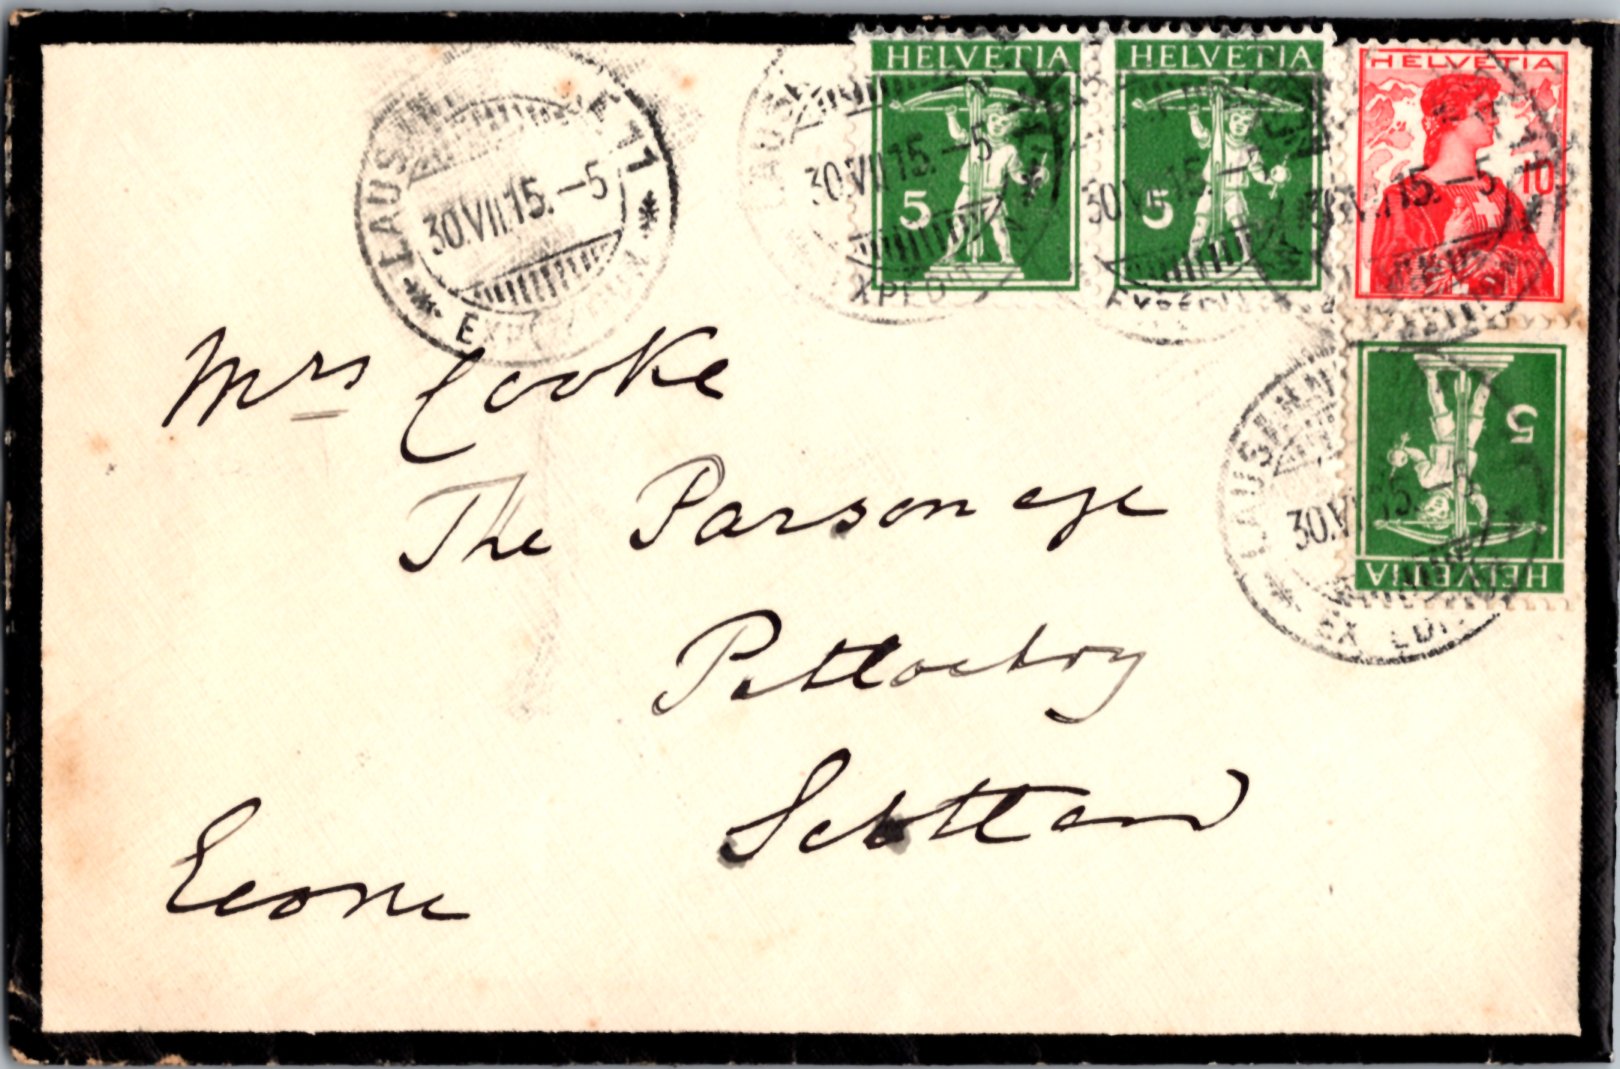 LAUSANNE 11
30.VII.15.–5
HELVETIA
5
30.VII.15.–5
HELVETIA
5
30.VII.15.–5
HELVETIA
10
HELVETIA
5
LAUSANNE
30.VII.15.–5
Mrs Cooke
The Parsonage
Pitlochry
Scotland